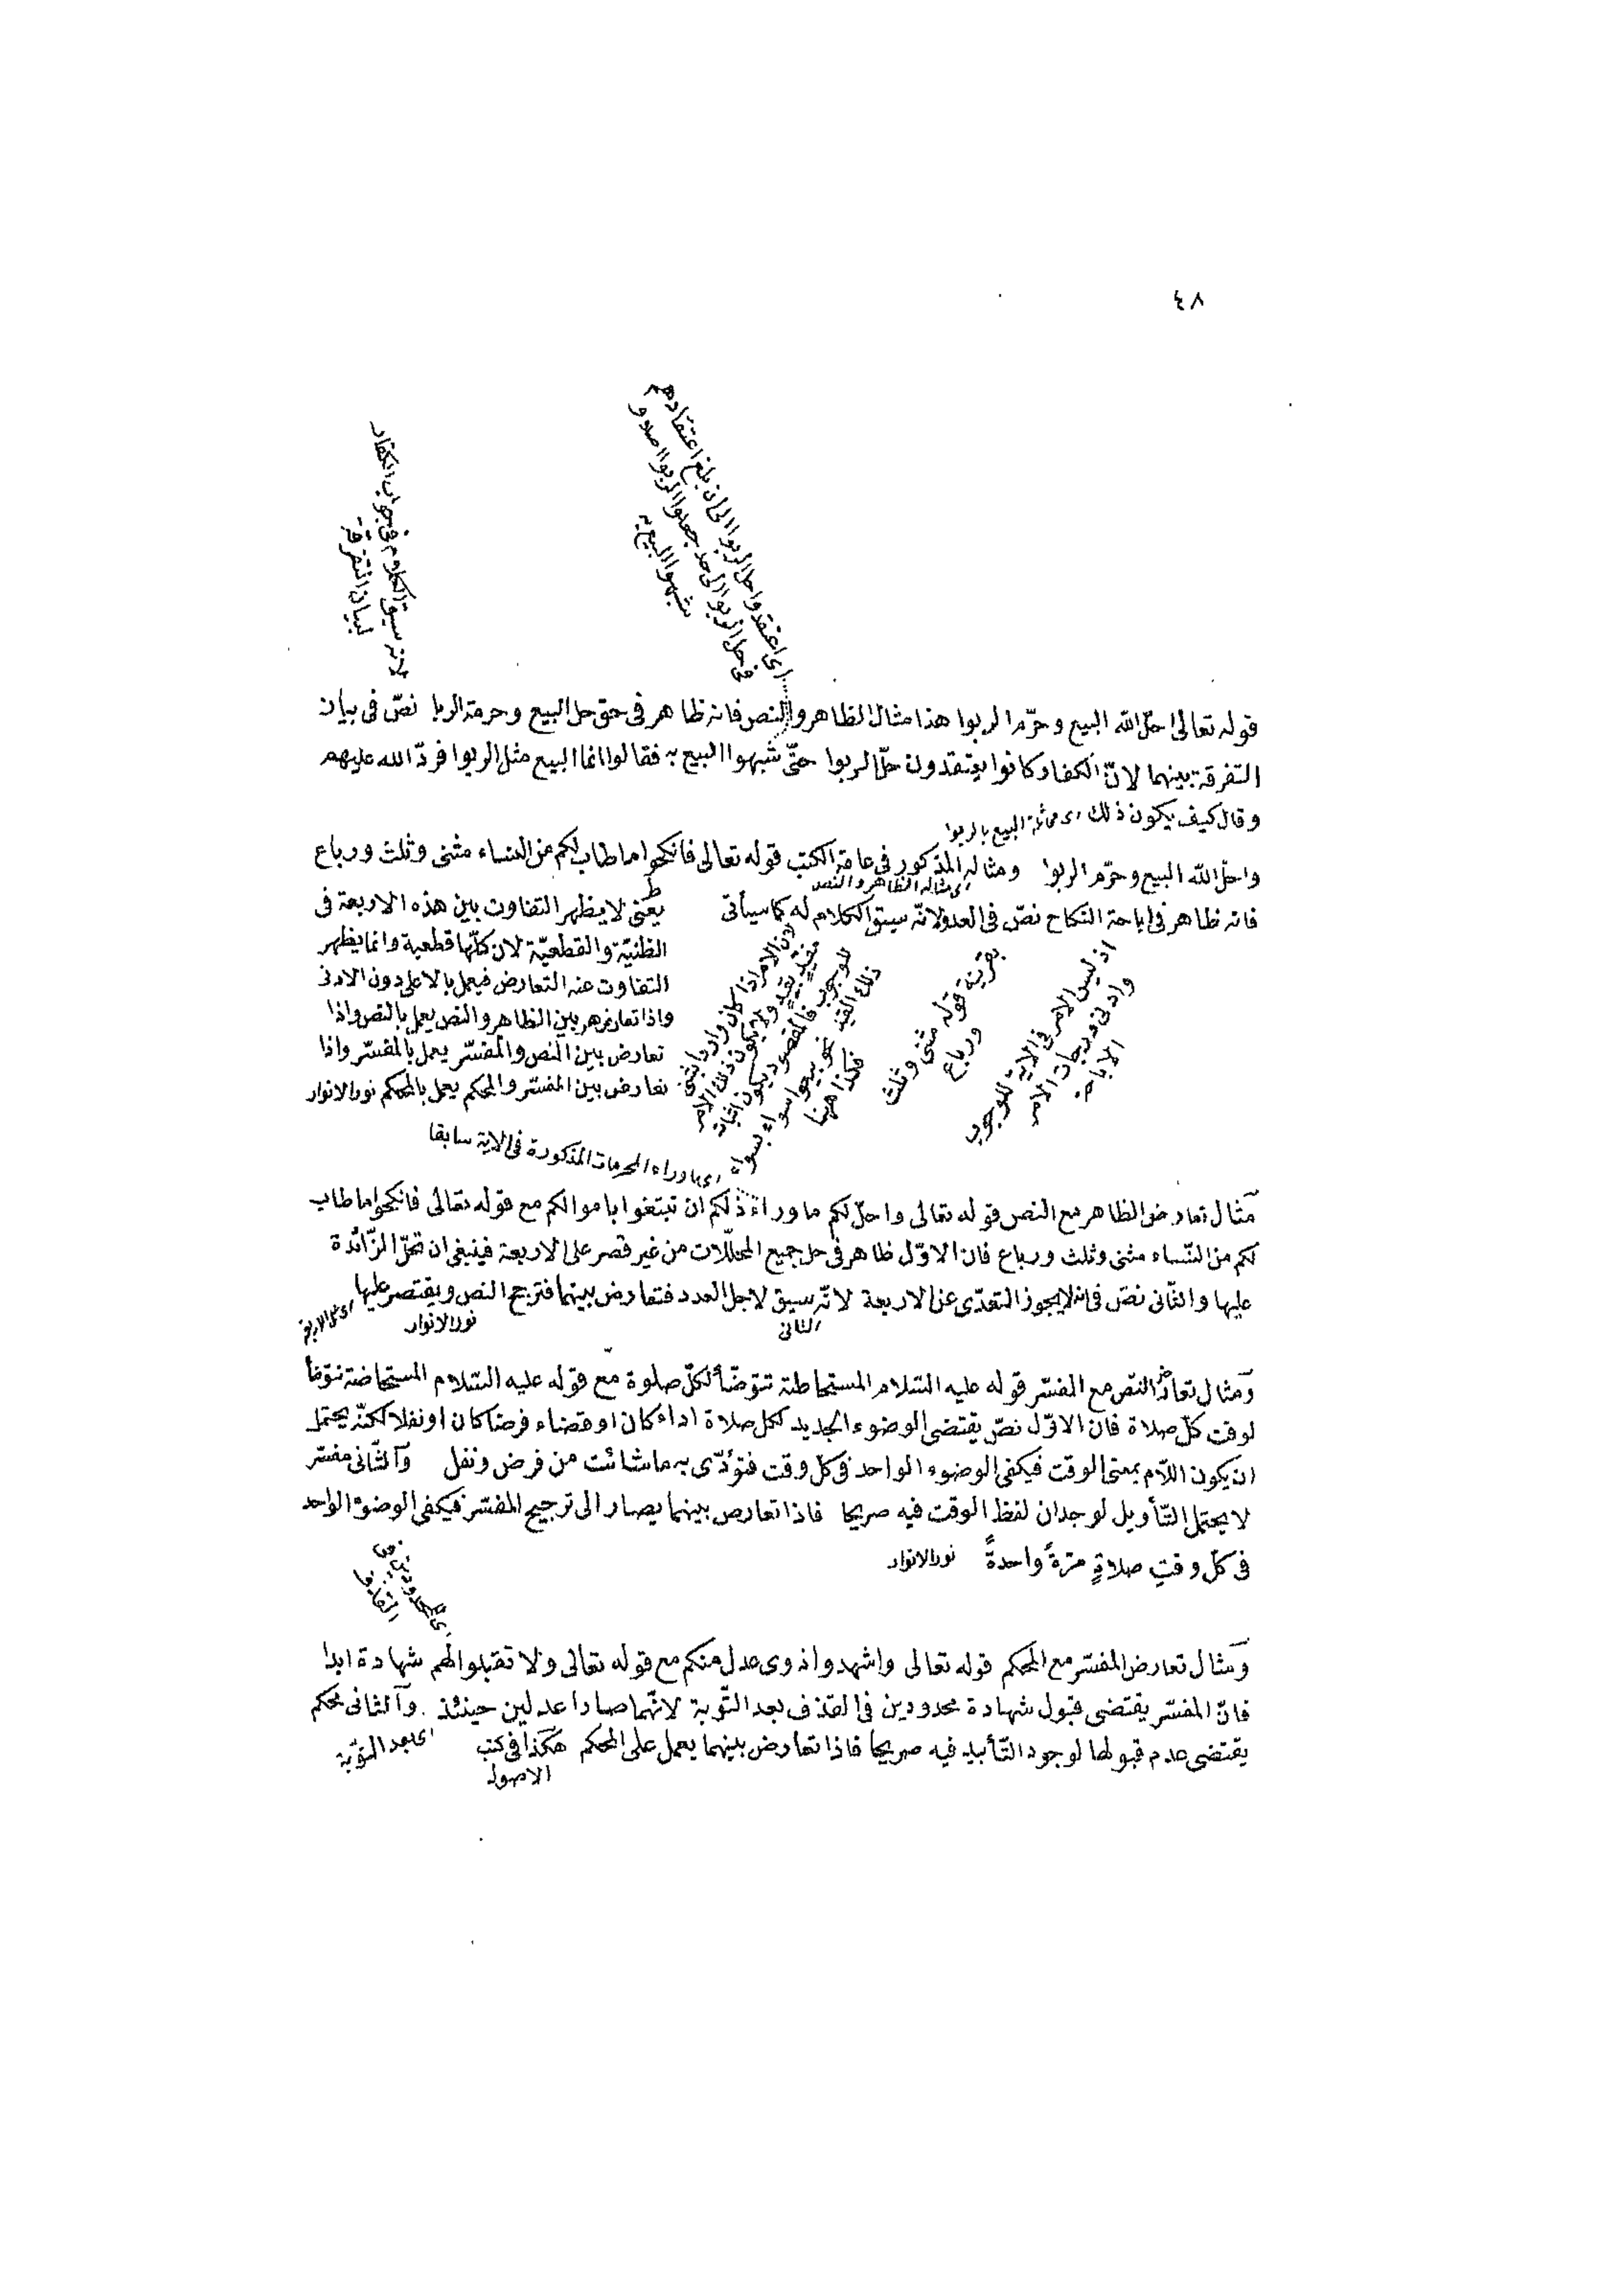 ٤٨
اى اعتقدوا حل الربوا الى ان بلغ اعتقادهم
فى حل الربوا الى حد جعلوا الربوا اصلا و
شبهوا البيع به
لانه سيق الكلام فى جواب الكفار
لبيان التفرقة
قوله تعالى احلّ الله البيع وحرّم الربوا هذا مثال الظاهر والنص فانه ظاهر فى حق حل البيع وحرمة الربا نصّ فى بيان
التفرقة بينهما لانّ الكفار كانوا يعتقدون حلّ الربوا حتّى شبهوا البيع به فقالوا انما البيع مثل الربوا فردّ الله عليهم
وقال كيف يكون ذلك اى مماثلة البيع بالربوا
واحلّ الله البيع وحرّم الربوا ومثاله المذكور فى عامة الكتب قوله تعالى فانكحوا ما طاب لكم من النساء مثنى وثلث ورباع
اى مثال الظاهر والنص
فانه ظاهر فى اباحة النكاح نصّ فى العدد لانّه سيق الكلام له كما سيأتى
اذ ليس الامر فى الاية للوجوب
وادنى درجات الامر
الاباحة
بقرينة قوله مثنى وثلث
ورباع
لان الامر اذا كان واردا بشئ
مقيّد بقيد ولا يكون ذلك الامر
للوجوب فالمقصود يكون اثبات
ذلك القيد نحو بيعوا سواء بسواء
فكذا ههنا
يعنى لا يظهر التفاوت بين هذه الاربعة فى
الظنيّة والقطعيّة لان كلّها قطعية وانما يظهر
التفاوت عند التعارض فيعمل بالاعلى دون الادنى
واذا تعارض بين الظاهر والنص يعمل بالنص واذا
تعارض بين النص والمفسّر يعمل بالمفسّر واذا
تعارض بين المفسّر والمحكم يعمل بالمحكم نور الانوار
اى ما وراء المحرمات المذكورة فى الاية سابقا
مثال تعارض الظاهر مع النص قوله تعالى واحلّ لكم ما وراء ذلكم ان تبتغوا باموالكم مع قوله تعالى فانكحوا ما طاب
لكم من النّساء مثنى وثلث ورباع فان الاوّل ظاهر فى حل جميع المحلّلات من غير قصر على الاربعة فينبغى ان تحلّ الزّائدة
عليها والثّانى نصّ فى انه لا يجوز التعدّى عن الاربعة لانّه سيق لاجل العدد فتعارض بينهما فترجح النص ويقتصر عليها
اى على الاربعة
الثانى
نور الانوار
ومثال تعارض النصّ مع المفسّر قوله عليه السّلام المستحاضة تتوضّأ لكلّ صلوة مع قوله عليه السّلام المستحاضة تتوضّأ
لوقت كلّ صلاة فان الاوّل نصّ يقتضى الوضوء الجديد لكل صلاة اداء كان او قضاء فرضا كان او نفلا لكنّه يحتمل
ان يكون اللّام بمعنى الوقت فيكفى الوضوء الواحد فى كلّ وقت فتؤدّى به ما شائت من فرض ونفل والثّانى مفسّر
لا يحتمل التّأويل لوجدان لفظ الوقت فيه صريحا فاذا تعارض بينهما يصار الى ترجيح المفسّر فيكفى الوضوء الواحد
فى كلّ وقتِ صلاةٍ مرّةً واحدةً نور الانوار
ومثال تعارض المفسّر مع المحكم قوله تعالى واشهدوا ذوى عدل منكم مع قوله تعالى ولا تقبلوا لهم شهادة ابدا
فانّ المفسّر يقتضى قبول شهادة محدودين فى القذف بعد التّوبة لانّهما صارا عدلين حينئذ والثانى محكم
يقتضى عدم قبولها لوجود التّأبيد فيه صريحا فاذا تعارض بينهما يعمل على المحكم هكذا فى كتب
الاصول
اى بعد التوبة